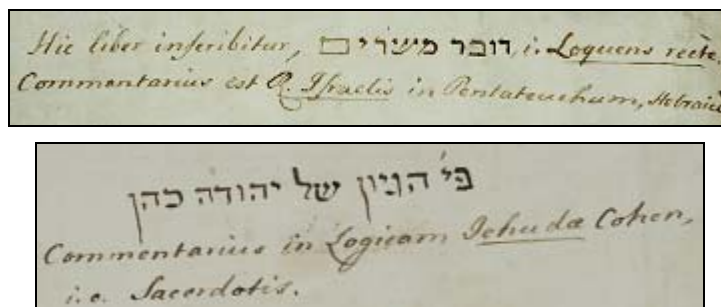 Hic liber inscribitur, דובר משרים i. Loquens recte.
Commentarius est R. Israelis in Pentateuchum, Hebraicè
פי' הגיון של יהודה כהן
Commentarius in Logicam Jehudæ Cohen,
i.e. Sacerdotis.